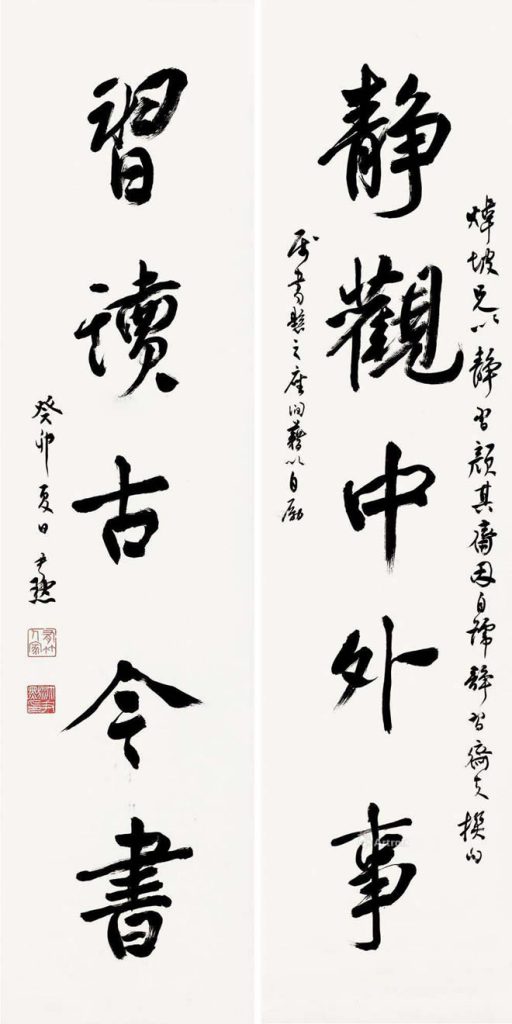 煒坡兄以靜習顏其齋因自號靜習齋夫撰句
靜觀中外事
屬書懸之座間藉以自勵
習讀古今書
癸卯夏日 尹默